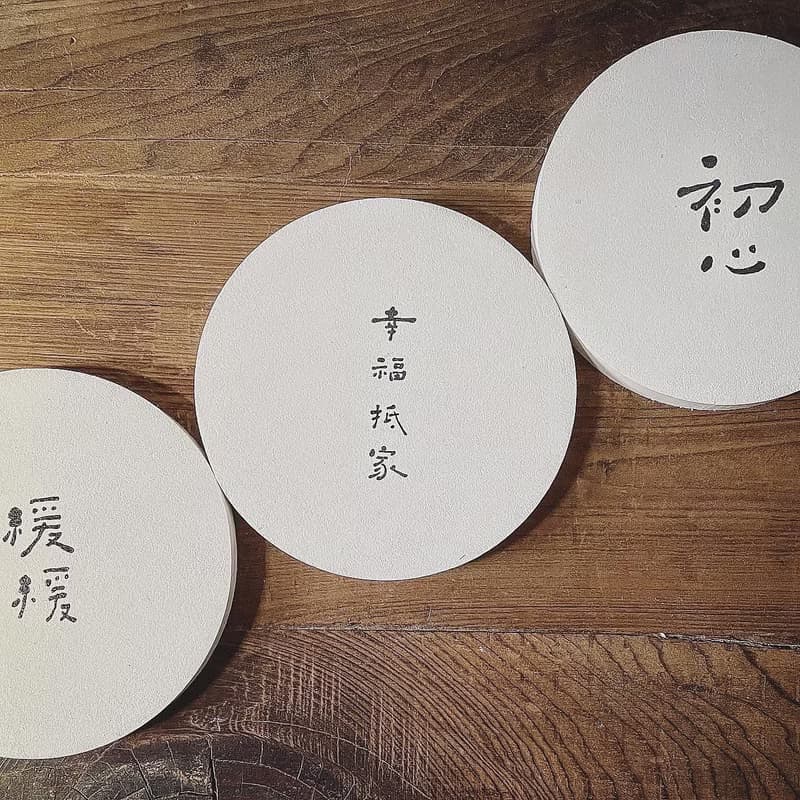 初心
幸福抵家
緩緩